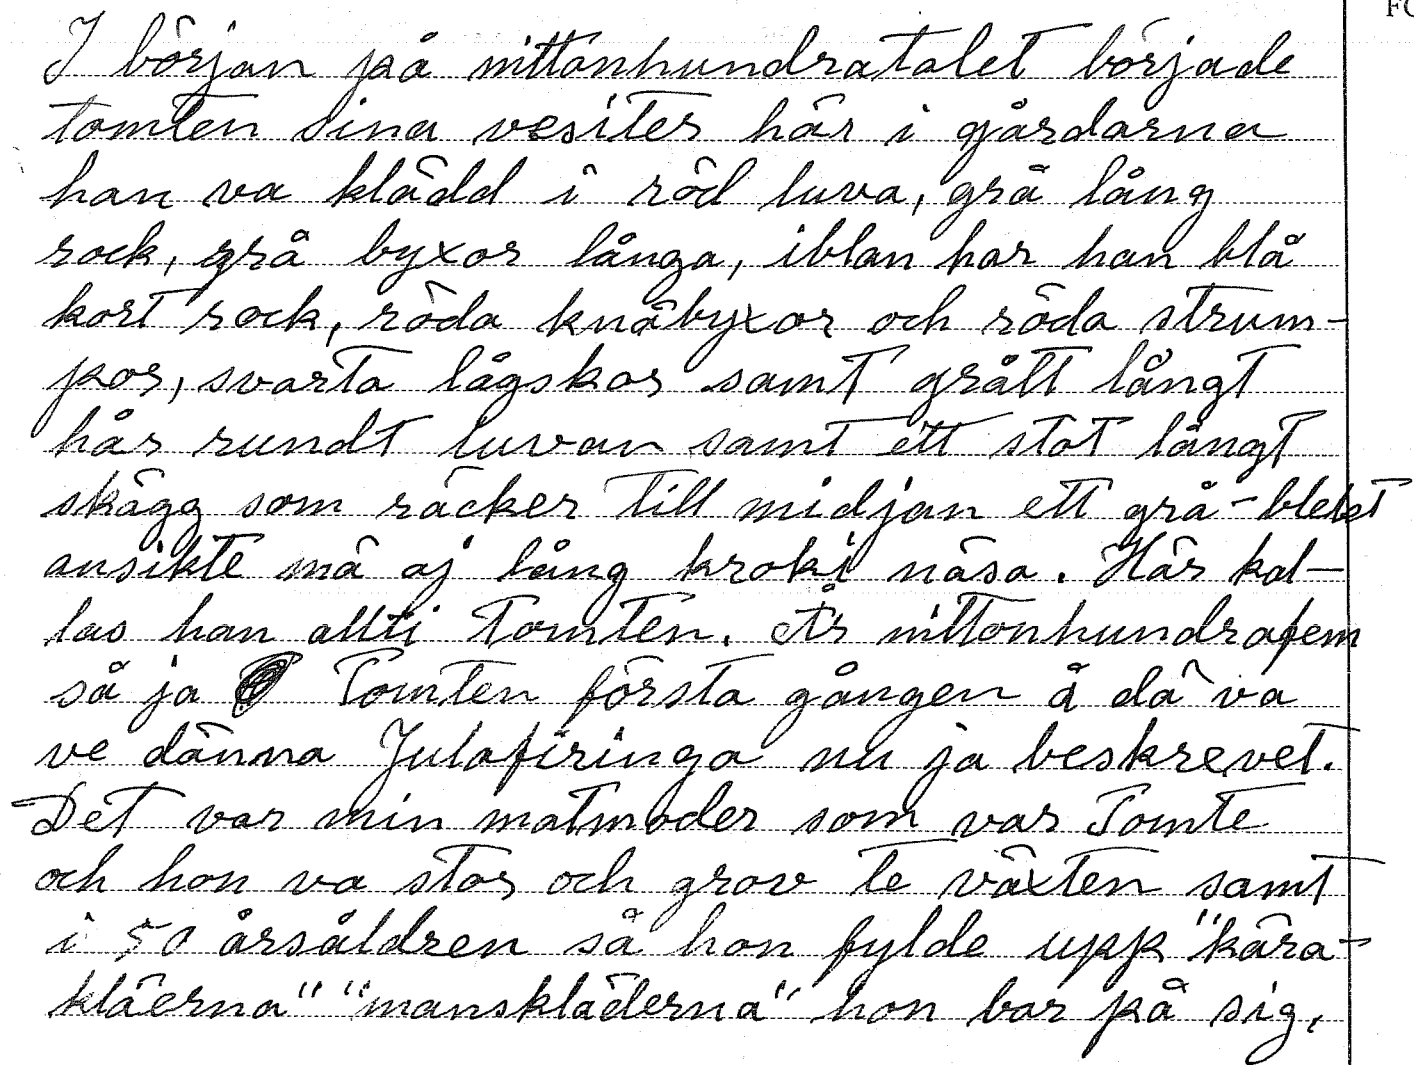 I början på nittonhundratalet började
tomten sina vesiter här i gårdarna
han va klädd i röd luva, grå lång
rock, grå byxor långa, iblan har han blå
kort rock, röda knäbyxor och röda strum-
por, svarta lågskor samt grått långt
hår rundt luvan samt ett stot långt
skägg som räcker till midjan ett grå-blekt
ansikte mä aj lång kroki näsa. Här kal-
las han allti Tomten. År nittonhundrafem
så ja Tomten första gången å dä va
ve dänna Julafiringa nu ja beskrevet.
Det var min matmoder som var Tomte
och hon va stor och grov te växten samt
i 50 årsåldren så hon fylde upp "kära-
kläerna" "manskläderna" hon bar på sig,